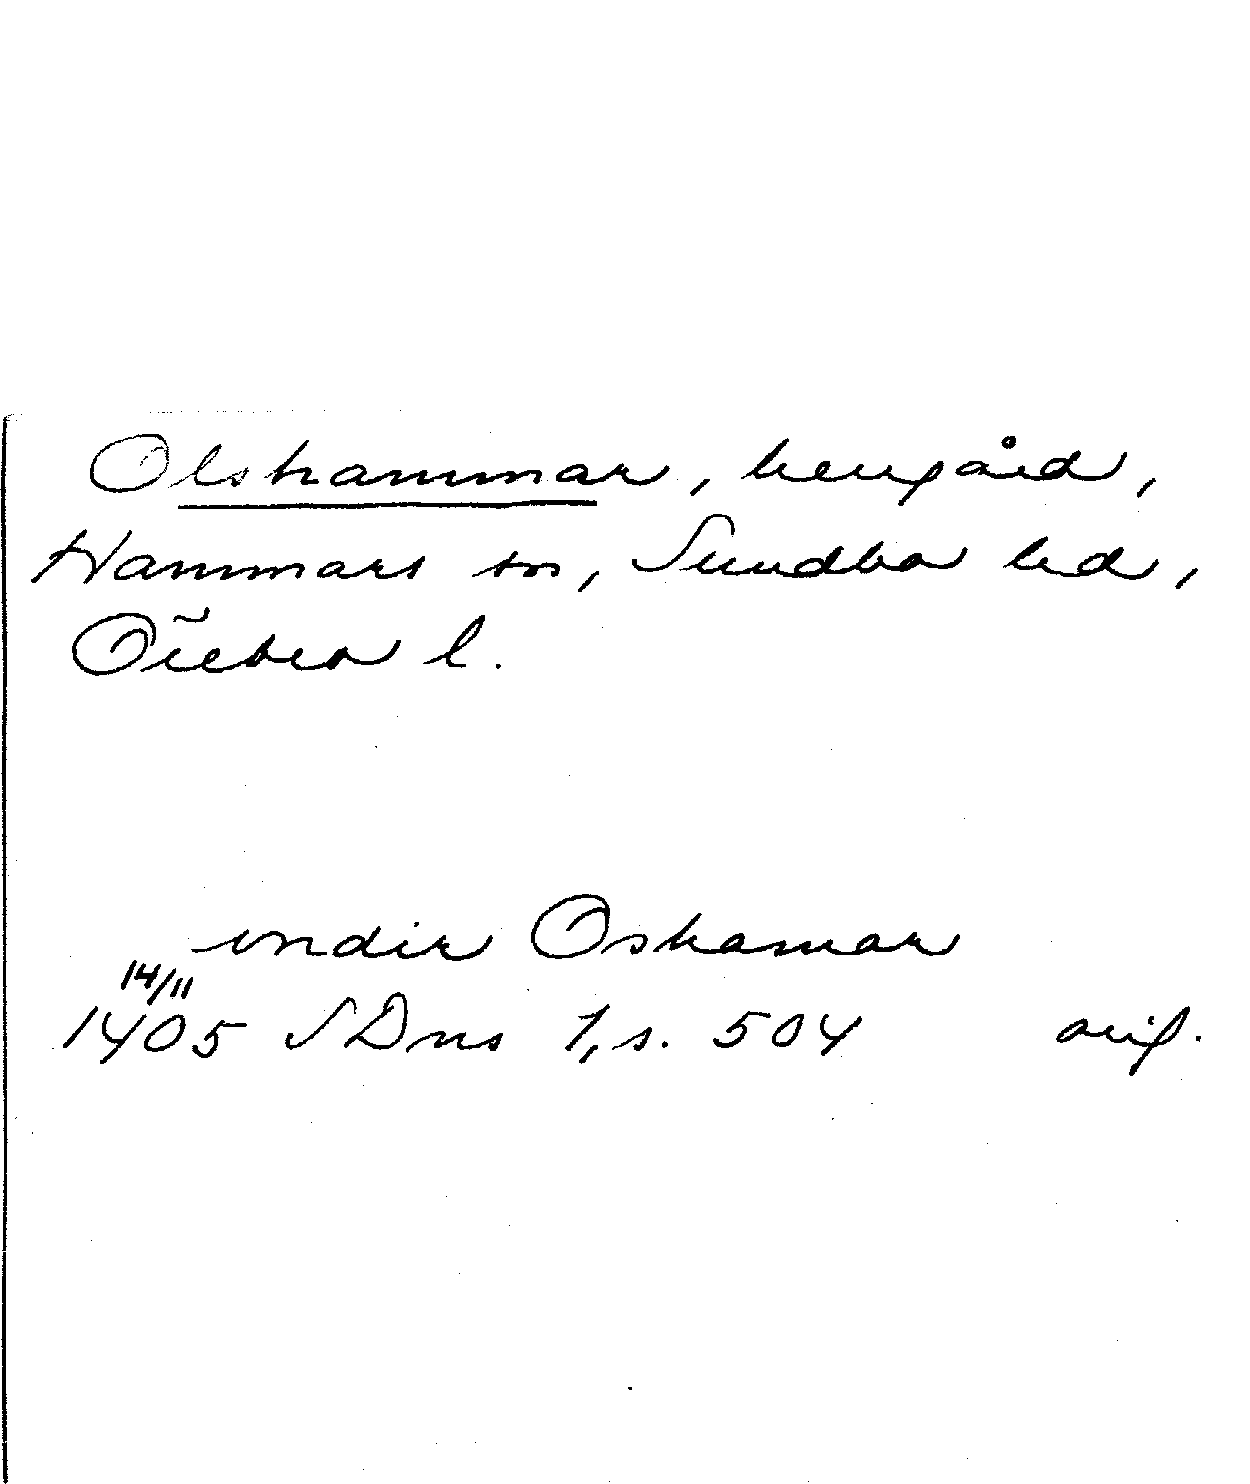 Olshammar, herrgård,
Hammars sn, Sundbo hd,
Örebro l.
vndir Oshamar
14/11
1405 SDns 1, s. 504 orig.